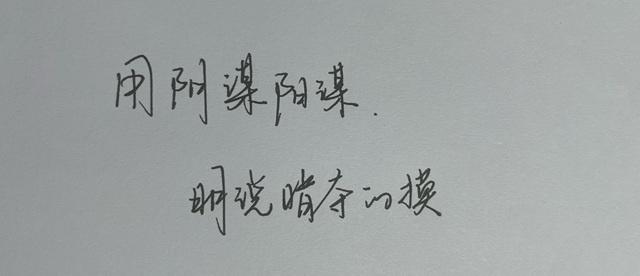 用阴谋阳谋.
明说暗夺的摸